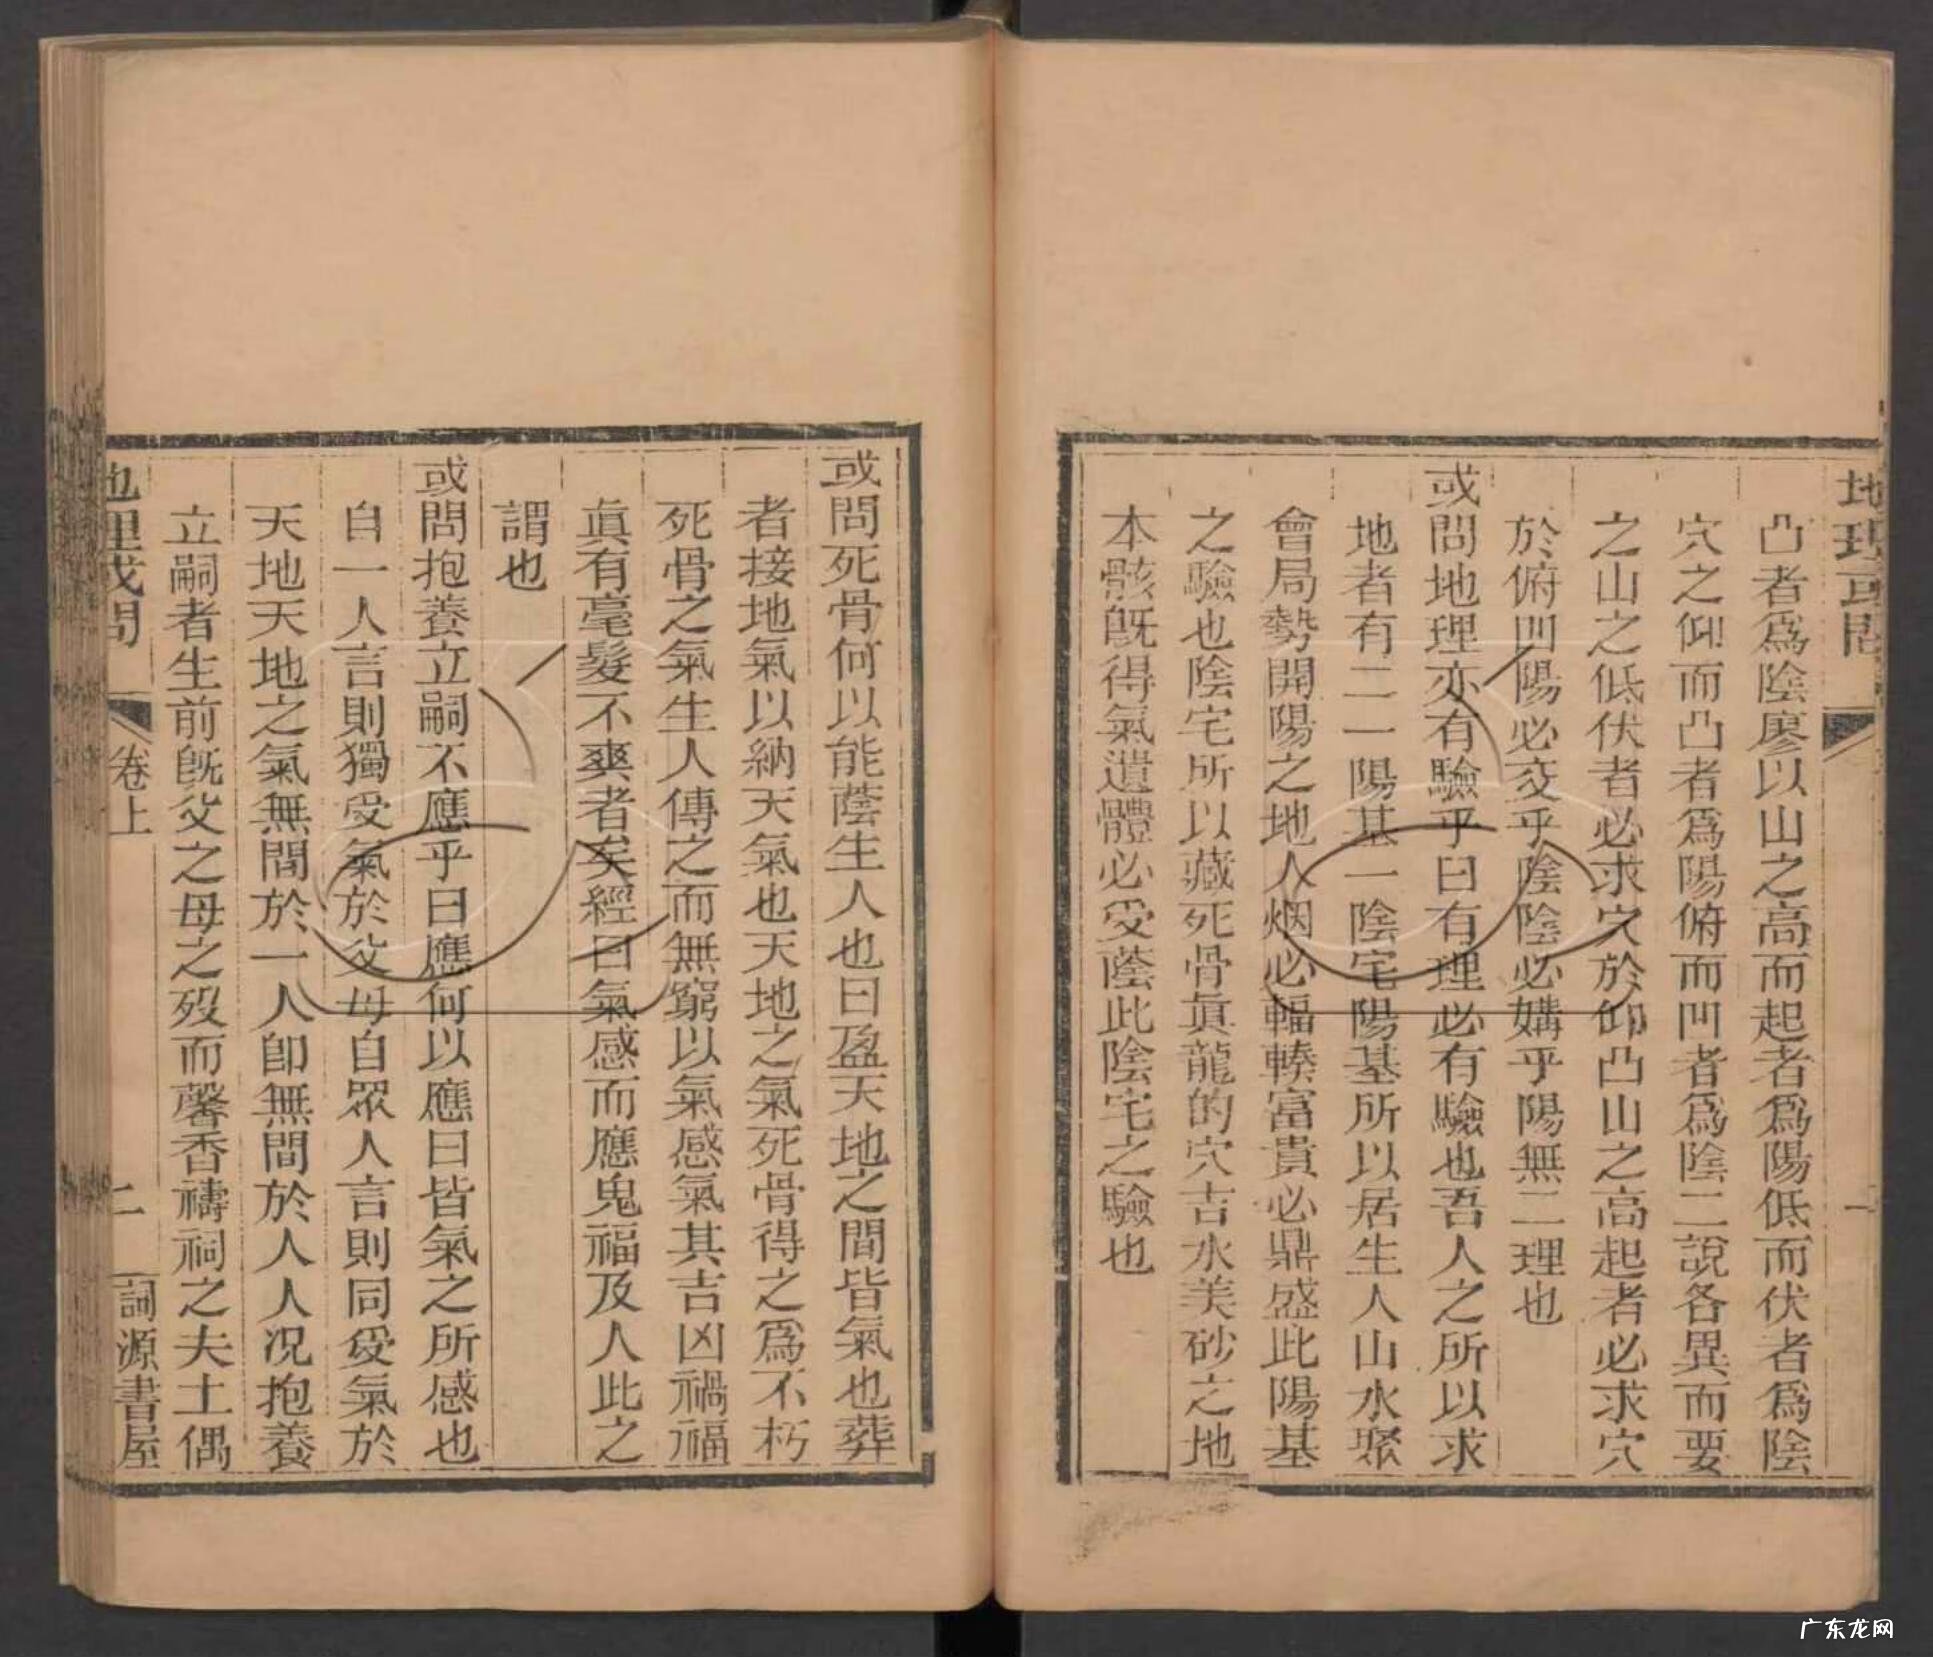 地理或問
一
凸者爲陰廖以山之高而起者爲陽低而伏者爲陰
穴之仰而凸者爲陽俯而凹者爲陰二說各異而要
之山之低伏者必求穴於仰凸山之高起者必求穴
於俯凹陽必交乎陰陰必媾乎陽無二理也
或問地理亦有驗乎曰有理必有驗也吾人之所以求
地者有二一陽基一陰宅陽基所以居生人山水聚
會局勢開陽之地人烟必輻輳富貴必鼎盛此陽基
之驗也陰宅所以藏死骨眞龍的穴吉水美砂之地
本骸旣得氣遺體必受蔭此陰宅之驗也
或問死骨何以能蔭生人也曰盈天地之間皆氣也葬
者接地氣以納天氣也天地之氣死骨得之爲不朽
死骨之氣生人傳之而無窮以氣感氣其吉凶禍福
眞有毫髮不爽者矣經曰氣感而應鬼福及人此之
謂也
或問抱養立嗣不應乎曰應何以應曰皆氣之所感也
自一人言則獨受氣於父母自眾人言則同受氣於
天地天地之氣無間於一人卽無間於人人况抱養
立嗣者生前旣父之母之歿而馨香禱祠之夫土偶
地理或問
卷上
二
詞源書屋
广东龙网